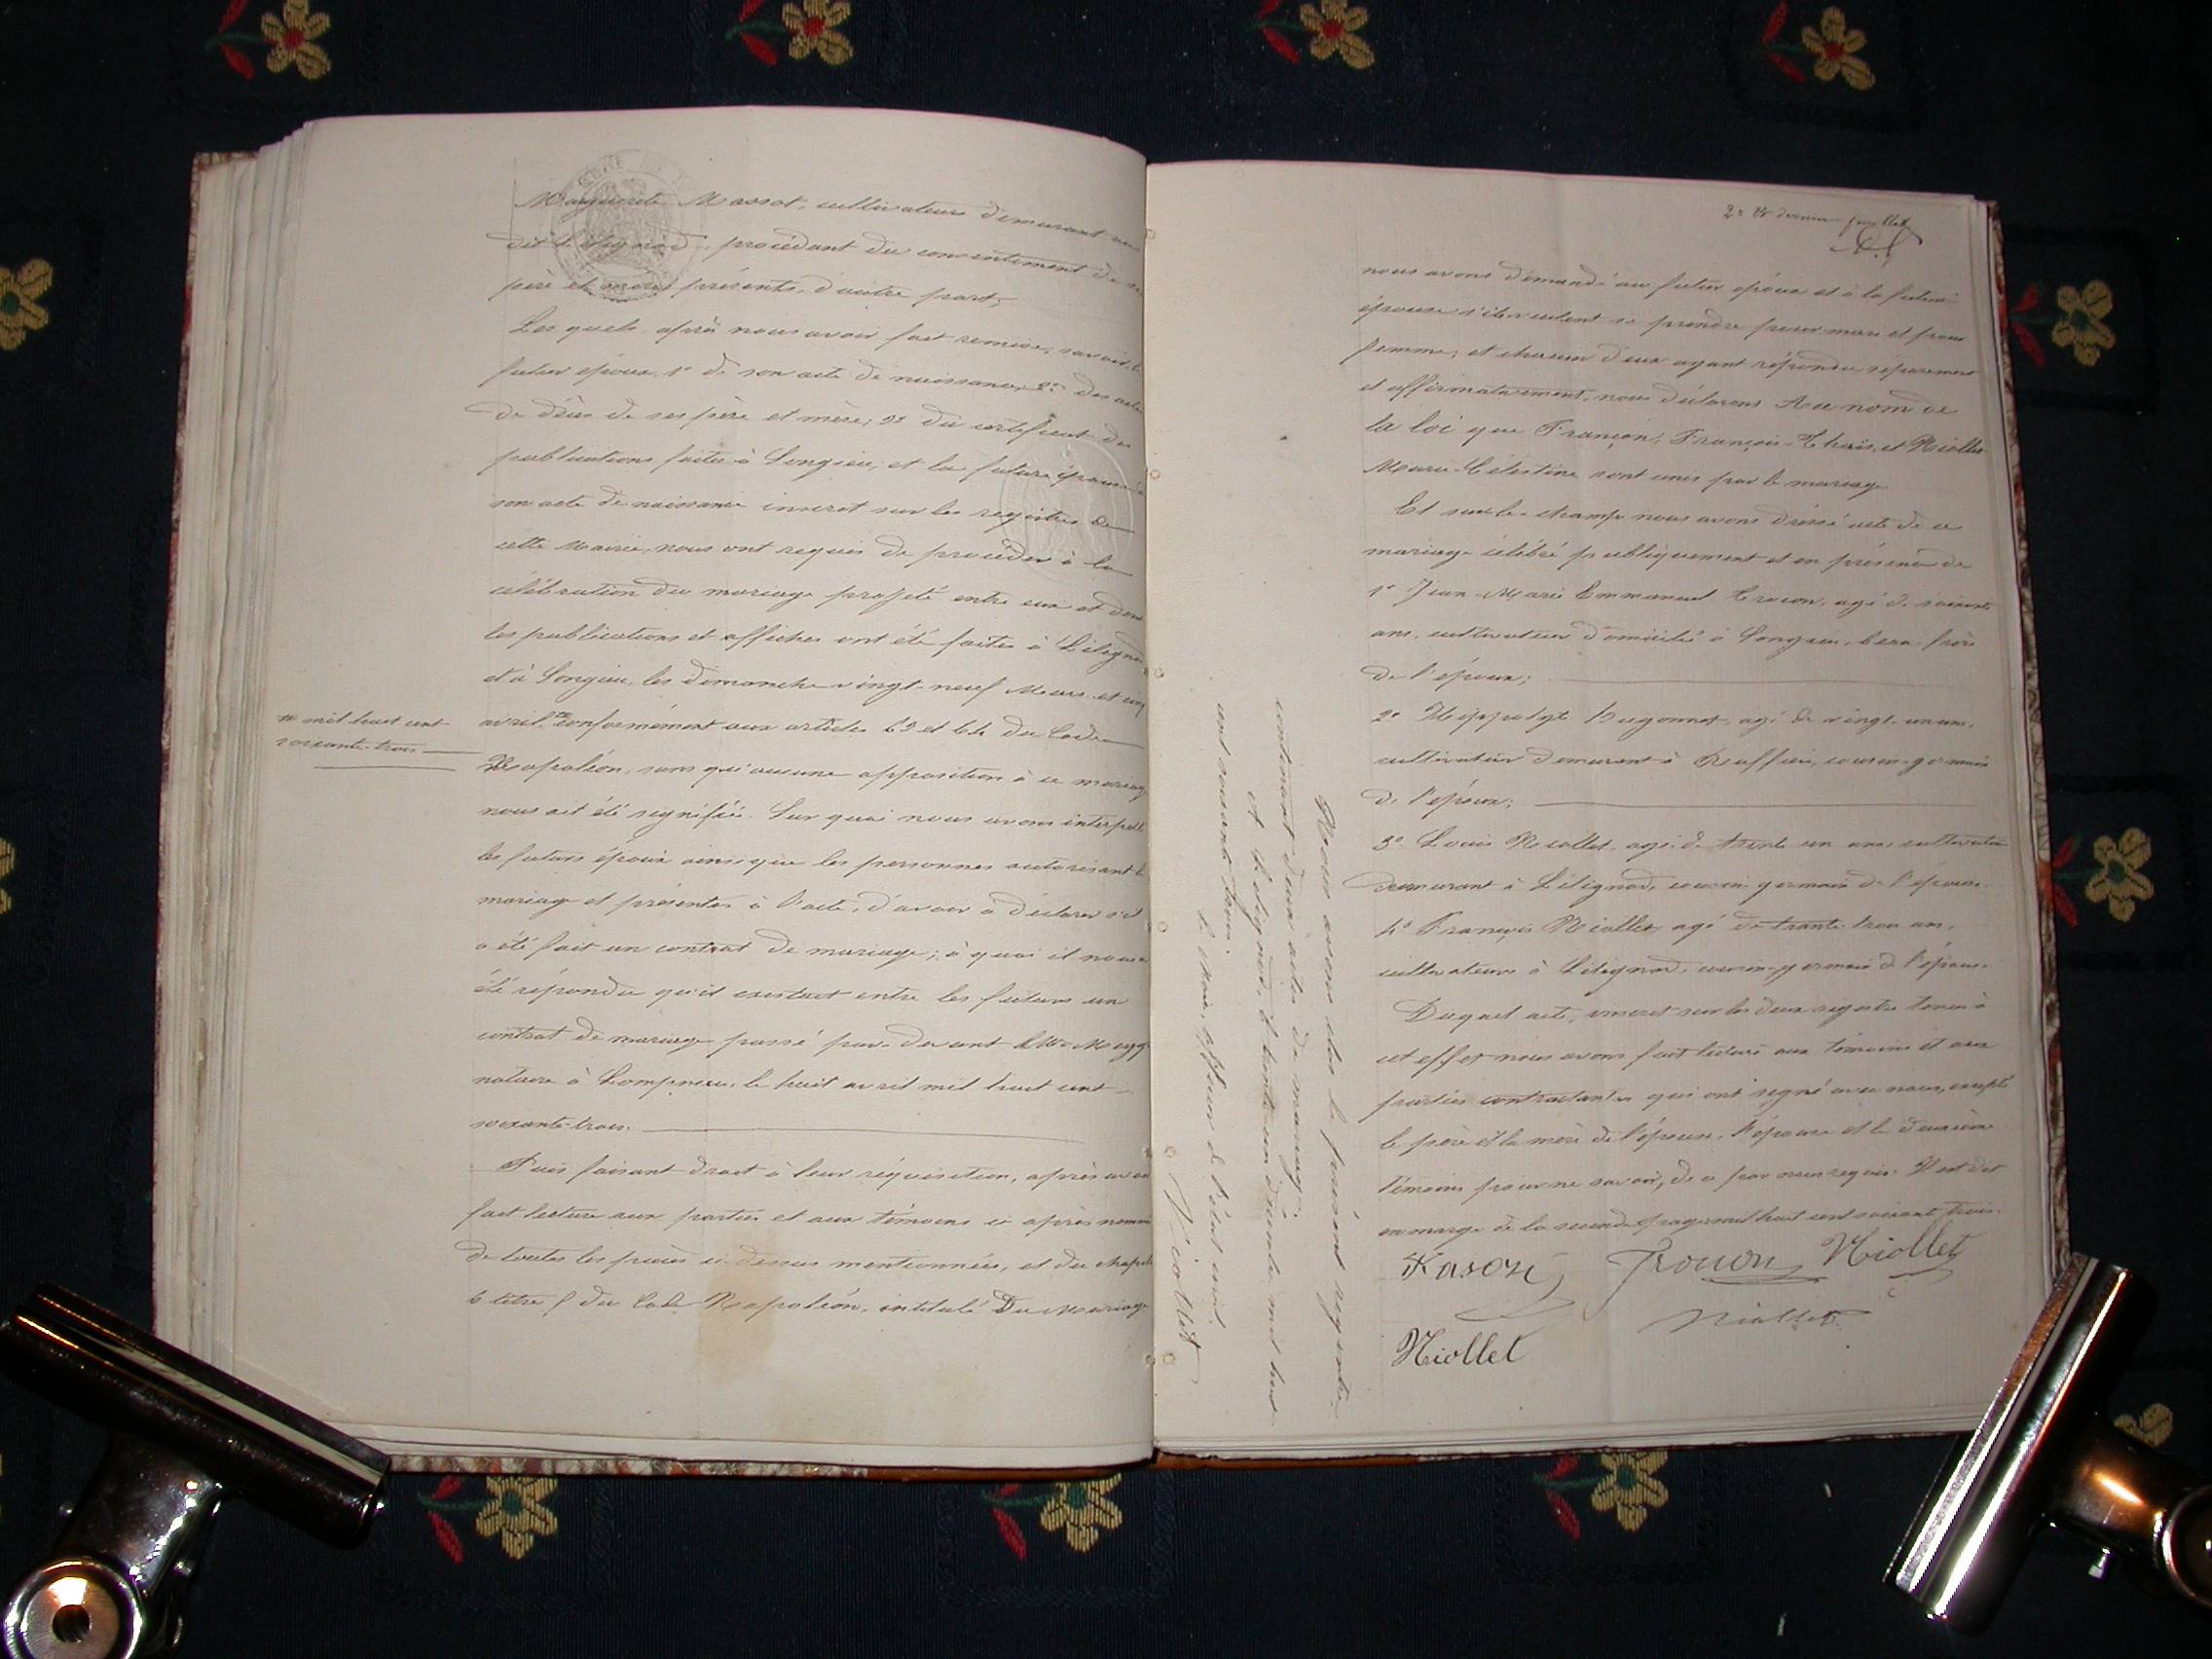 Marguerite Massot, cultivateurs demeurant au
dit Lilignod, procédant du consentement de ses
père et mère présents, d'autre part;
Les quels après nous avoir fait remise, savoir, le
futur époux, 1° de son acte de naissance, 2° des actes
de décès de ses père et mère; 3° du certificat des
publications faites à Songieu; et la future épouse
son acte de naissance inscrit sur les registres de
cette Mairie, nous ont requis de procéder à la
célébration du mariage projeté entre eux et dont
les publications et affiches ont été faites à Lilignod
et à Songieu, les dimanche vingt-neuf Mars et cinq
avril conformément aux articles 63 et 64 du Code
Napoléon, sans qu'aucune opposition à ce mariage
nous ait été signifiée. Sur quoi nous avons interpellé
les futurs époux ainsi que les personnes autorisant le
mariage et présentes à l'acte, d'avoir à déclarer s'il
a été fait un contrat de mariage; à quoi il nous a
été répondu qu'il existait entre les futurs un
contrat de mariage passé par-devant
notaire à Lompnieu, le huit avril mil huit cent
soixante-trois.
Puis faisant droit à leur réquisition, après avoir
fait lecture aux parties et aux témoins ci après nommés
de toutes les pièces ci-dessus mentionnées, et du chapitre
6 titre 5 du Code Napoléon, intitulé Du Mariage
mil huit cent
soixante-trois
2e et dernier feuillet
nous avons demandé au futur époux et à la future
épouse s'ils veulent se prendre pour mari et pour
femme; et chacun d'eux ayant répondu séparément
et affirmativement, nous déclarons Au nom de
la loi que François-Thaïs, et Niollet
Marie-Célestine sont unis par le mariage
Et sur-le-champ nous avons dressé acte de ce
mariage célébré publiquement et en présence de
1° Jean-Marie Emmanuel agé de soixante
ans, cultivateur domicilié à Songieu, beau-frère
de l'époux;
2° Hippolyte Hugonnet, agé de vingt-un ans,
cultivateur demeurant à Ruffieu, cousin-germain
de l'époux;
3° Louis Niollet, agé de trente un ans, cultivateur
demeurant à Lilignod, cousin-germain de l'épouse.
4° François Niollet, agé de trente-trois ans,
cultivateur à Lilignod, cousin-germain de l'épouse.
Duquel acte, inscrit sur les deux registres tenus à
cet effet nous avons fait lecture aux témoins et aux
parties contractantes qui ont signé avec nous, excepté
le père et la mère de l'épouse, l'épouse et le deuxième
témoins pour ne savoir, de ce par nous requis. Il est dit
en marge de la seconde page mil huit cent soixante trois.
Niollet
Niollet
Niollet
Nous avons clos le présent registre
contenant deux actes de mariage,
à Lilignod, le trente-un décembre mil huit
cent soixante-trois.
le Maire, officier de l'état civil